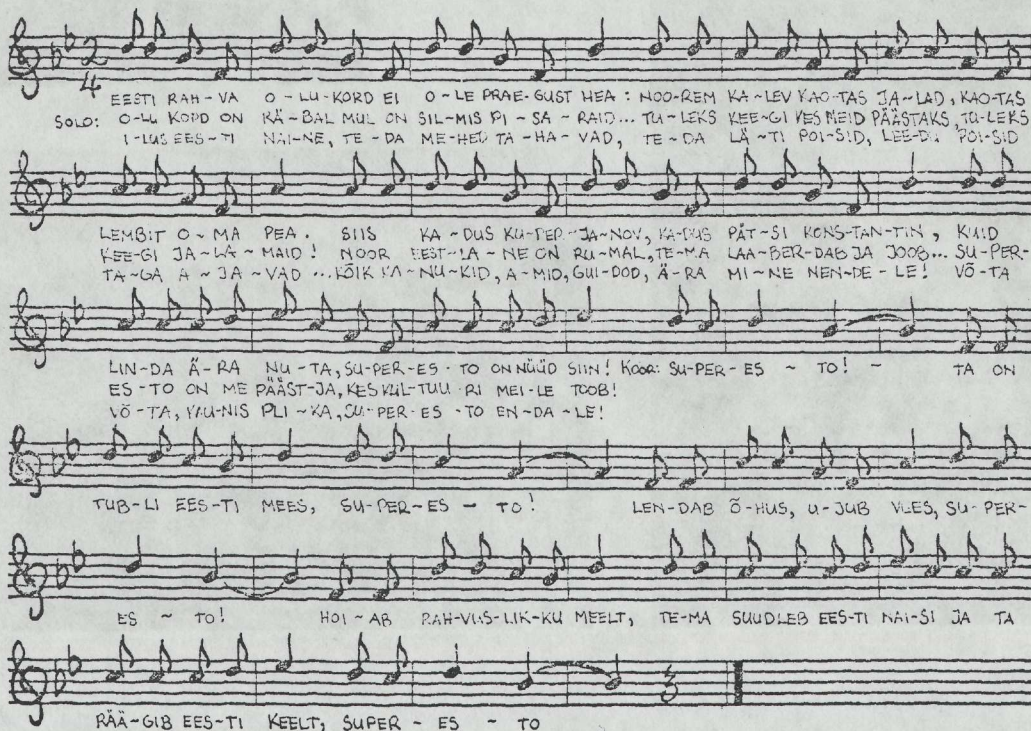 2
4
EESTI RAH-VA O~LU-KORD EI O~LE PRAE-GUST HEA: NOO-REM KA~LEV KAO-TAS JA~LAD, KAO-TAS
SOLO: O-LU KORD ON KÄ-BAL MUL ON SIL-MIS PI-SA-RAID... TU-LEKS KEE-GI KES MEID PÄÄSTAKS, TU-LEKS
I-LUS EES-TI NAI-NE, TE-DA ME-HED TA-HA-VAD, TE-DA LÄ-TI POI-SID, LEE-DU POI-SID
LEMBIT O-MA PEA. SIIS KA~DUS KU-PER-JA-NOV, KA-DUS PÄT-SI KONS-TAN-TIN, KUID
KEE-GI JA-LA-MAID! NOOR EEST-LA-NE ON RU-MAL, TE-MA LAA-BER-DAB JA JOOB... SU-PER-
TA-GA A-JA-VAD... KÕIK KA-NU-KID, A-MID, GUI-DOD, Ä-RA MI-NE NEN-DE-LE! VÕ-TA
LIN-DA Ä-RA NU-TA, SU-PER-ES-TO ON NÜÜD SIIN! KOOR: SU-PER-ES ~ TO! - TA ON
ES-TO ON ME PÄÄST-JA, KES KUL-TUU-RI MEI-LE TOOB!
VÕ-TA, KAU-NIS PLI-KA, SU-PER-ES-TO EN-DA-LE!
TUB-LI EES-TI MEES, SU-PER-ES ~ TO! LEN-DAB Õ-HUS, U-JUB VEES, SU-PER-
ES ~ TO! HOI-AB RAH-VUS-LIK-KU MEELT, TE-MA SUUDLEB EES-TI NAI-SI JA TA
RÄÄ-GIB EES-TI KEELT, SUPER-ES ~ TO